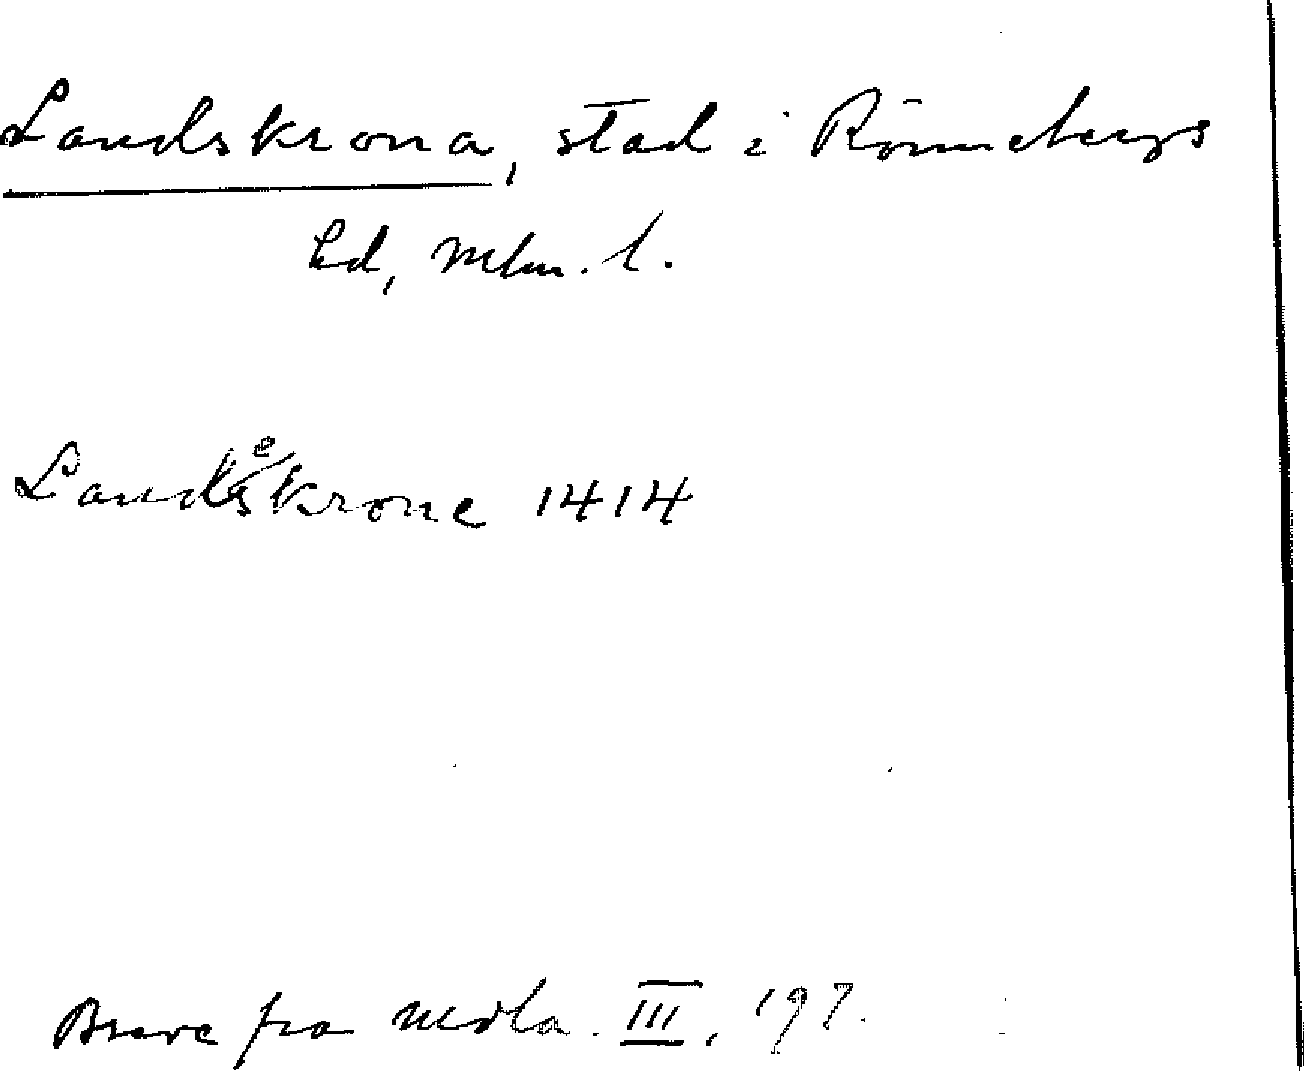 Landskrona, stad i Rönnebergs
hd, Mlm. l.
Landeskrone 1414
Breve fra Mdla. III, 197.